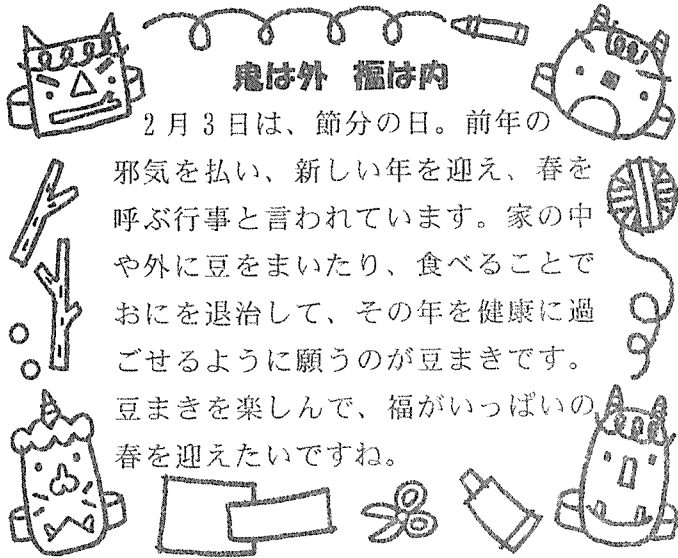 鬼は外 福は内
2月3日は、節分の日。前年の
邪気を払い、新しい年を迎え、春を
呼ぶ行事と言われています。家の中
や外に豆をまいたり、食べることで
おにを退治して、その年を健康に過
ごせるように願うのが豆まきです。
豆まきを楽しんで、福がいっぱいの
春を迎えたいですね。